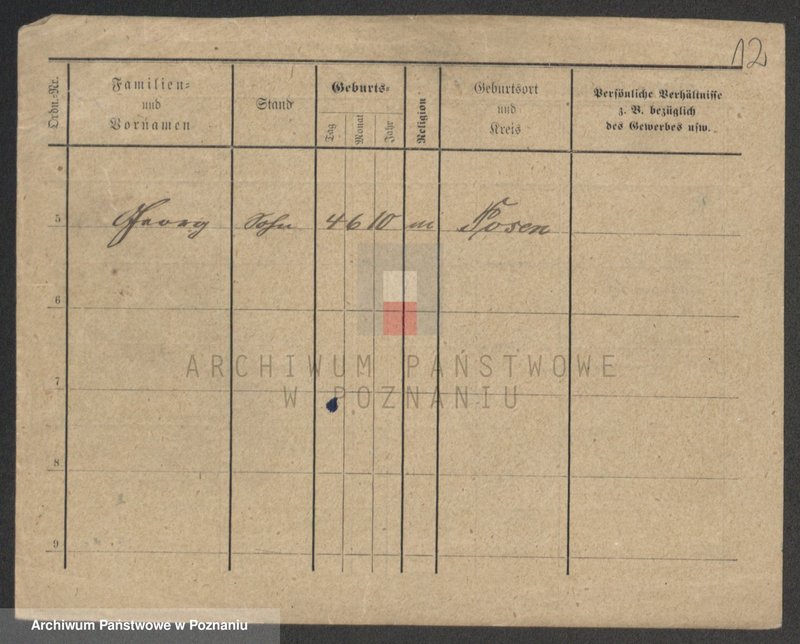 12
Ordn.-Nr.
Familien-
und
Vornamen
Stand
Geburts-
Tag
Monat
Jahr
Religion
Geburtsort
und
Kreis
Persönliche Verhältnisse
z. B. bezüglich
des Gewerbes usw.
5 Georg Sohn 4 6 10 m Posen
6
ARCHIWUM PAŃSTWOWE
W POZNANIU
7
8
9
Archiwum Państwowe w Poznaniu